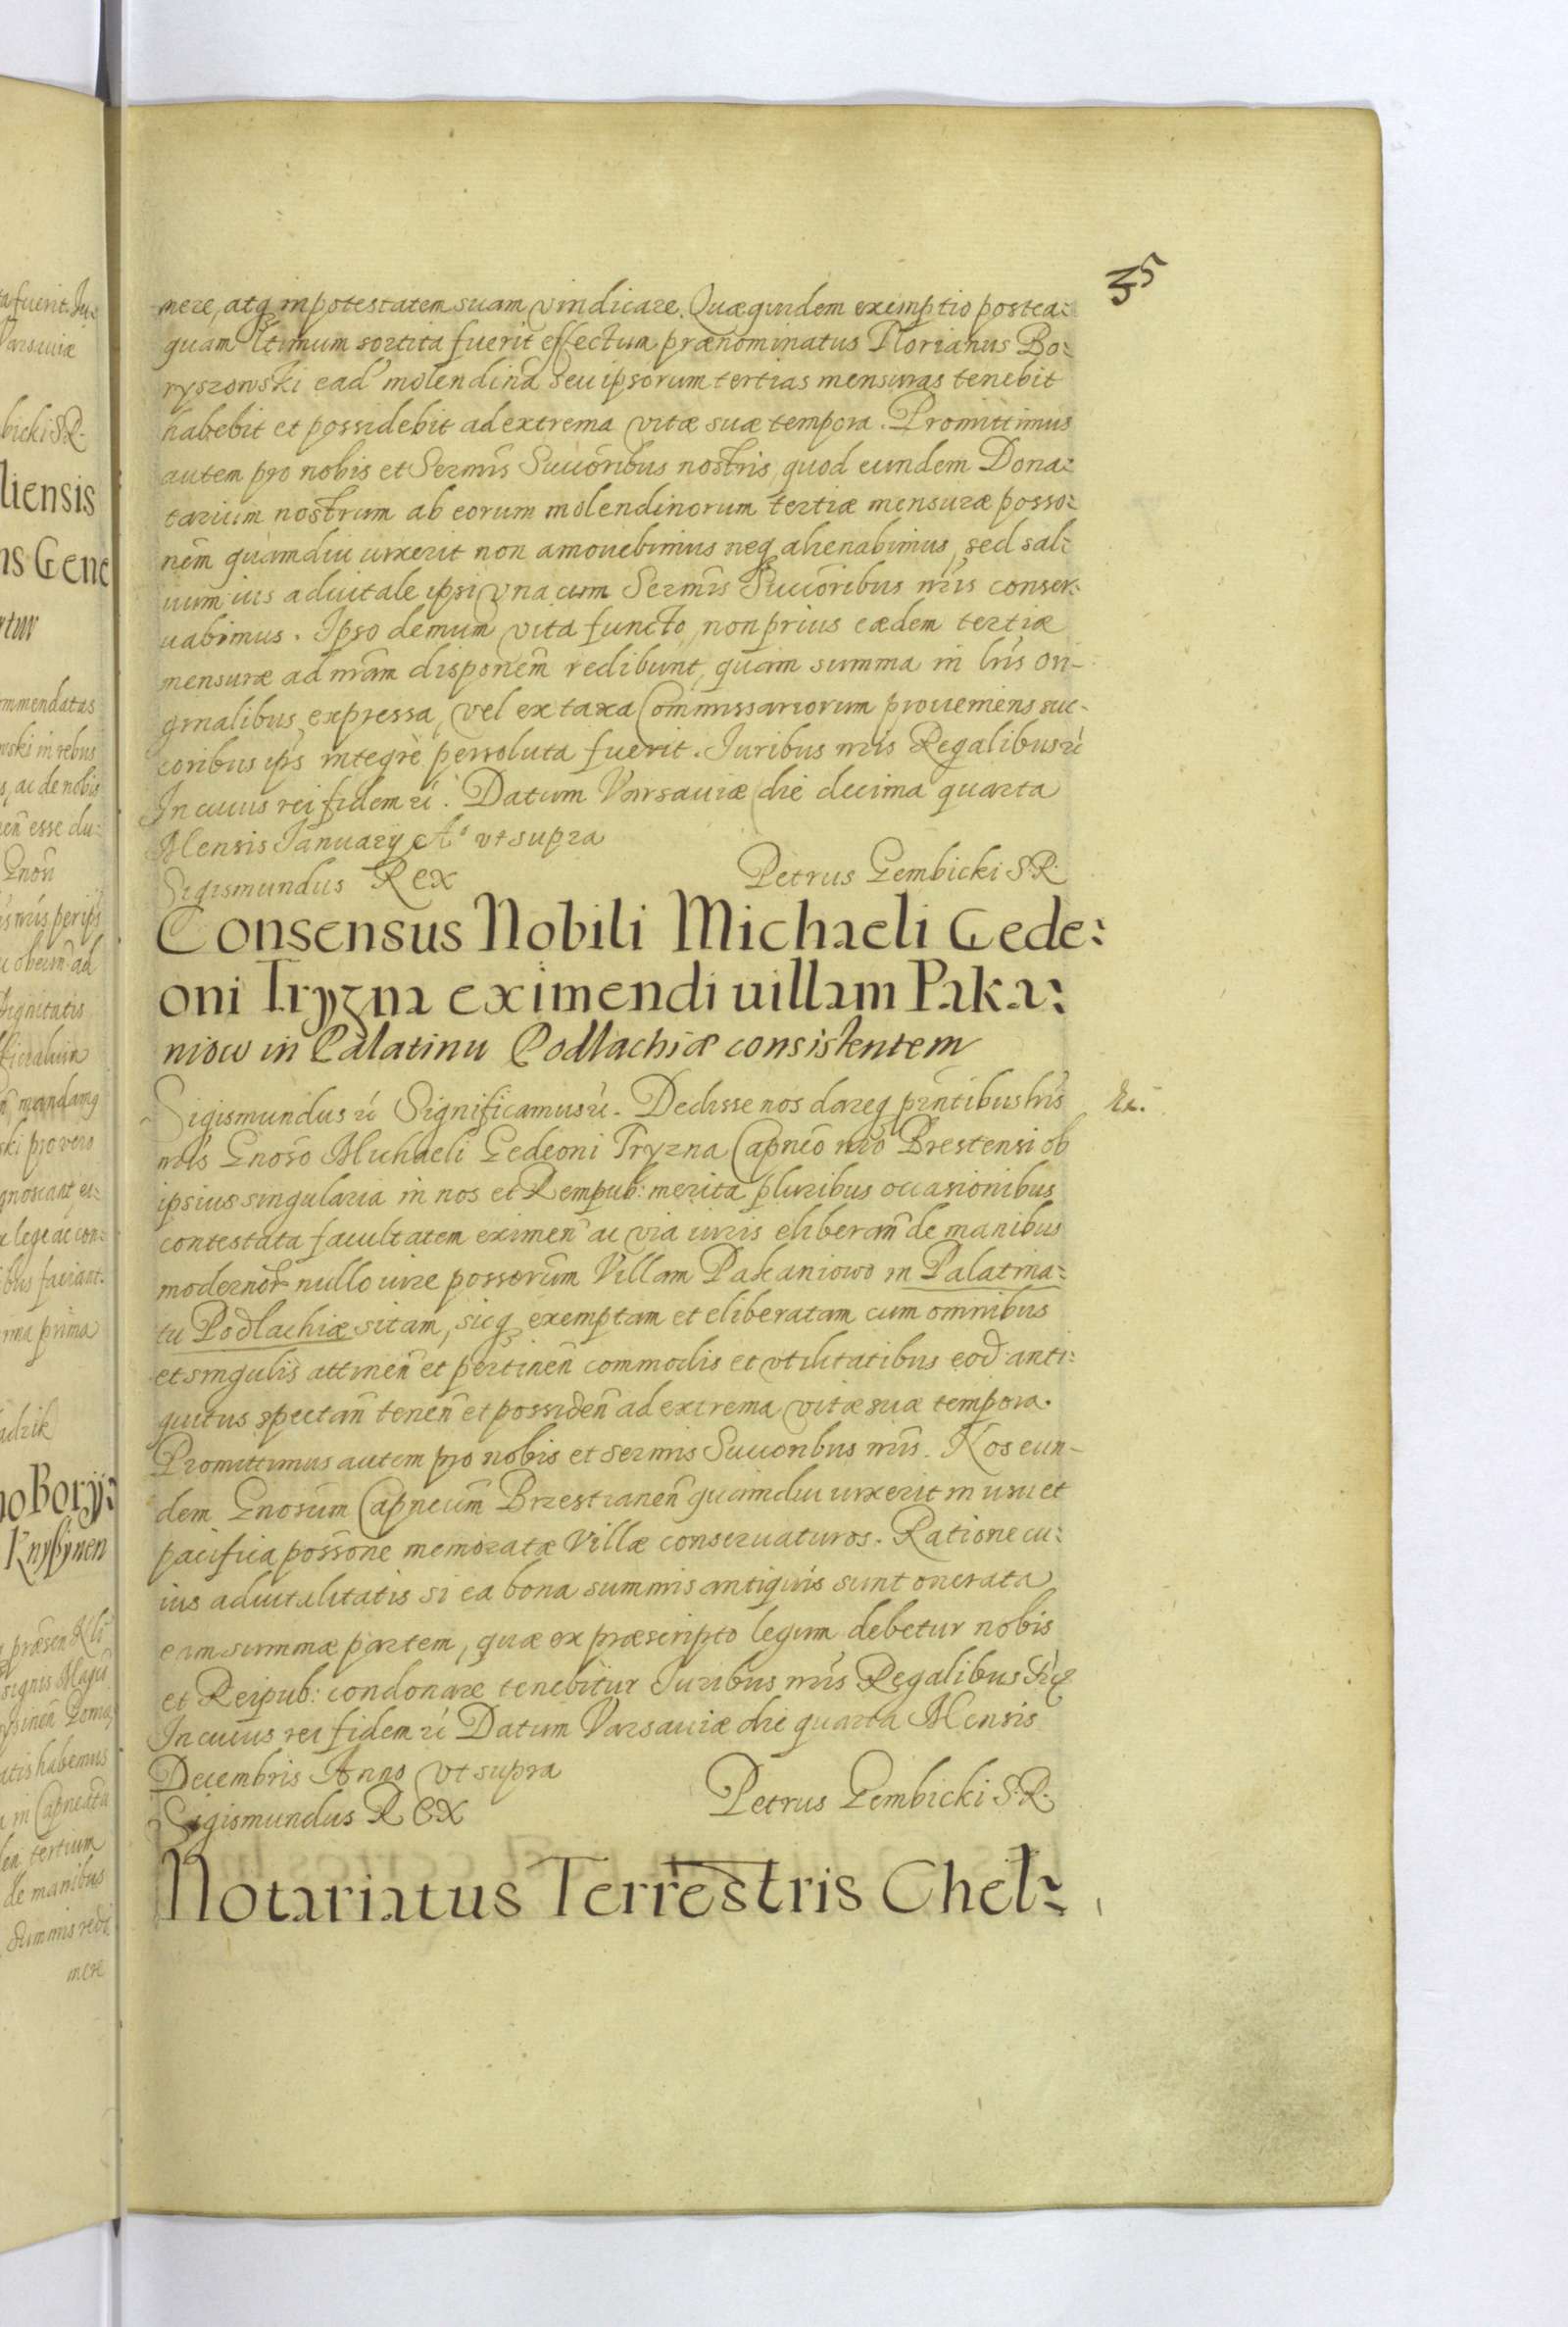 35
mere, atq in potestatem suam vindicare. Quæquidem exemptio postea:
quam ltimum sortita fuerit effectum prænominatus Florianus Bo:
ryszowski ead molendina seu ipsorum tertias mensuras tenebit
habebit et possidebit ad extrema vitæ suæ tempora. Promittimus
autem pro nobis et Sermis Succoribus nostris, quod eundem Dona:
tarium nostrum ab eorum molendinorum tertiæ mensuræ posso:
nem quamdiu uixerit non amouebimus neq alienabimus, sed sal:
uum ius aduitale ipsi vna cum Sermis Succoribus nris conser:
uabimus. Ipso demum vita functo, non prius eædem tertiæ
mensuræ ad nram disponem redibunt, quam summa in lris ori-
ginalibus expressa, vel ex taxa Commissariorum proueniens suc-
coribus ips integrè persoluta fuerit. Iuribus nris Regalibus ri
In cuius rei fidem ri. Datum Varsauiæ die decima quarta
Mensis Ianuarij Aº vt supra
Sigismundus Rex Petrus Gembicki S.R.
Consensus Nobili Michaeli Gede:
oni Tryzna eximendi uillam Paka:
niow in Palatinu Podlachiæ consistentem
Sigismundus ri Significamus ri. Dedisse nos dareq pntibus lris
nris Gnoso Michaeli Gedeoni Tryzna Capneo nro Brestensi ob
ipsius singularia in nos et Rempub: merita pluribus occasionibus
contestata facultatem eximen ac via iuris eliberan de manibus
modernor nullo iure possorum Villam Pakaniowo in Palatina:
tu Podlachiæ sitam, sicq exemptam et eliberatam cum omnibus
et singulis attinen et pertinen commodis et vtilitatibus eod anti:
quitus spectan tenen et possiden ad extrema vitæ suæ tempora.
Promittimus autem pro nobis et sermis Succoribus nris. Nos eun-
dem Gnosum Capneum Brzestianen quamdiu uixerit in usu et
pacifica possone memoratæ Villæ conseruaturos. Ratione cu:
ius aduitalitatis si ea bona summis antiquis sunt onerata
eam summæ partem, quæ ex præscripto legum debetur nobis
et Reipub: condonare tenebitur Iuribus nris Regalibus
In cuius rei fidem ri Datum Varsauiæ die quarta Mensis
Decembris Anno vt supra
Sigismundus Rex Petrus Gembicki S.R.
Notariatus Terrestris Chel: